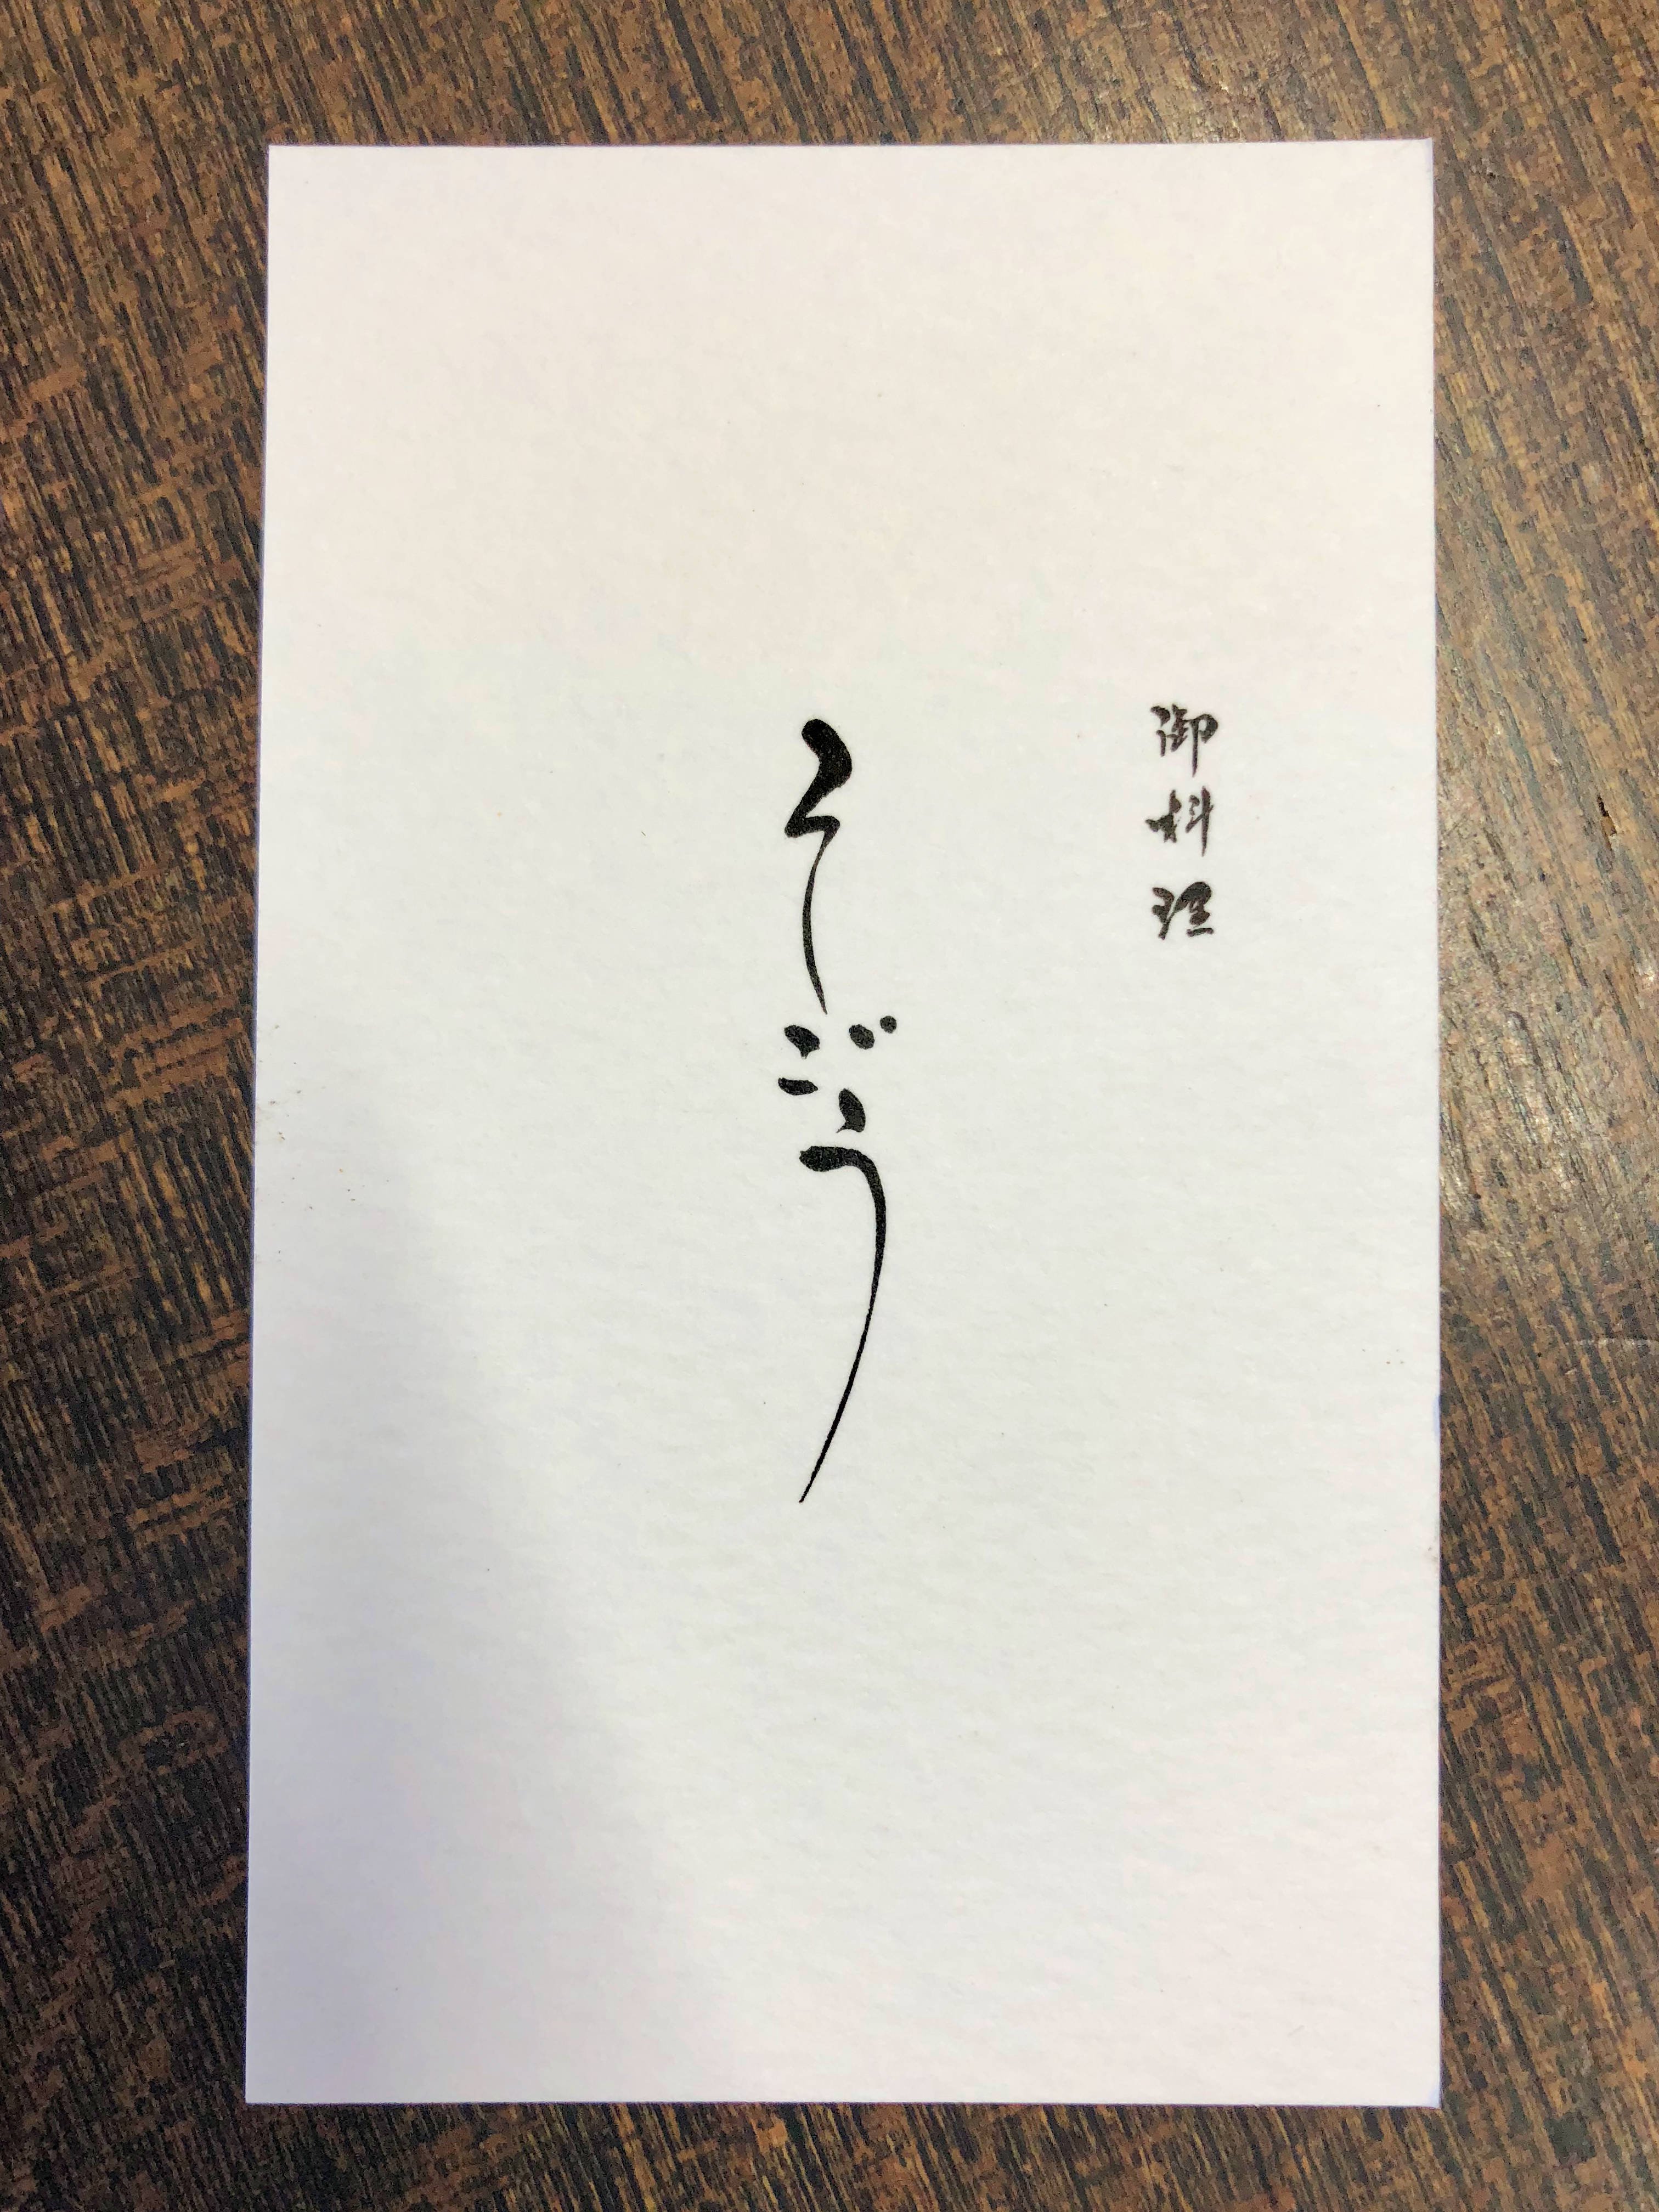 御料理
そごう